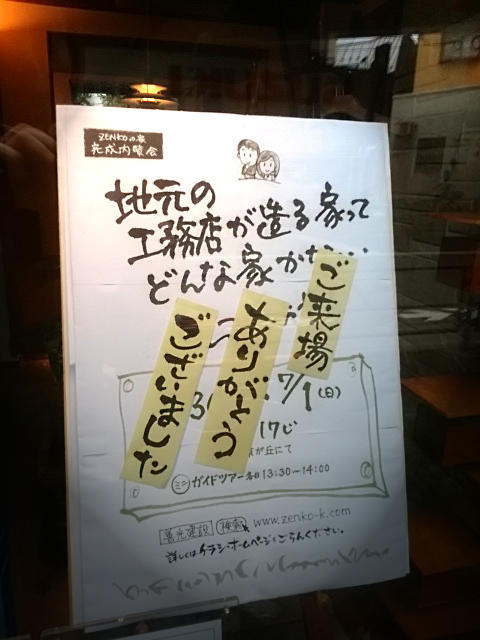 ZENKOの家
完成内覧会
地元の
工務店が造る家って
どんな家かな…
ご来場
ありがとう
ございました
7/1(日)
17じ
が丘にて
ミニガイドツアー各日13:30～14:00
善光建設 検索 www.zenko-k.com
詳しくはチラシ・ホームページをごらんください。